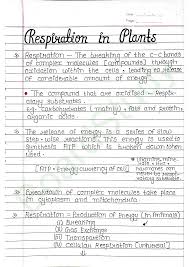 Respiration in Plants
Respiration - The breaking of the c-c bonds
of complex molecules (compounds) through
oxidation within the cells, leading to release
of considerable amount of energy.
The compound that are oxidised - Respir-
atory substrates.
eg- carbohydrates (mainly), fats and proteins,
organic acids.
The release of energy is a series of slow
step-wise reactions. This energy is used to
synthesis ATP which is broken down when
needed.
(ATP - Energy currency of cell)
Breakdown of complex molecules take place
in cytoplasm and mitochondria
Respiration - Production of Energy (In Animals)
(i) Breathing
(ii) Gas Exchange
(iii) Transportation
(iv) Cellular Respiration (Universal)